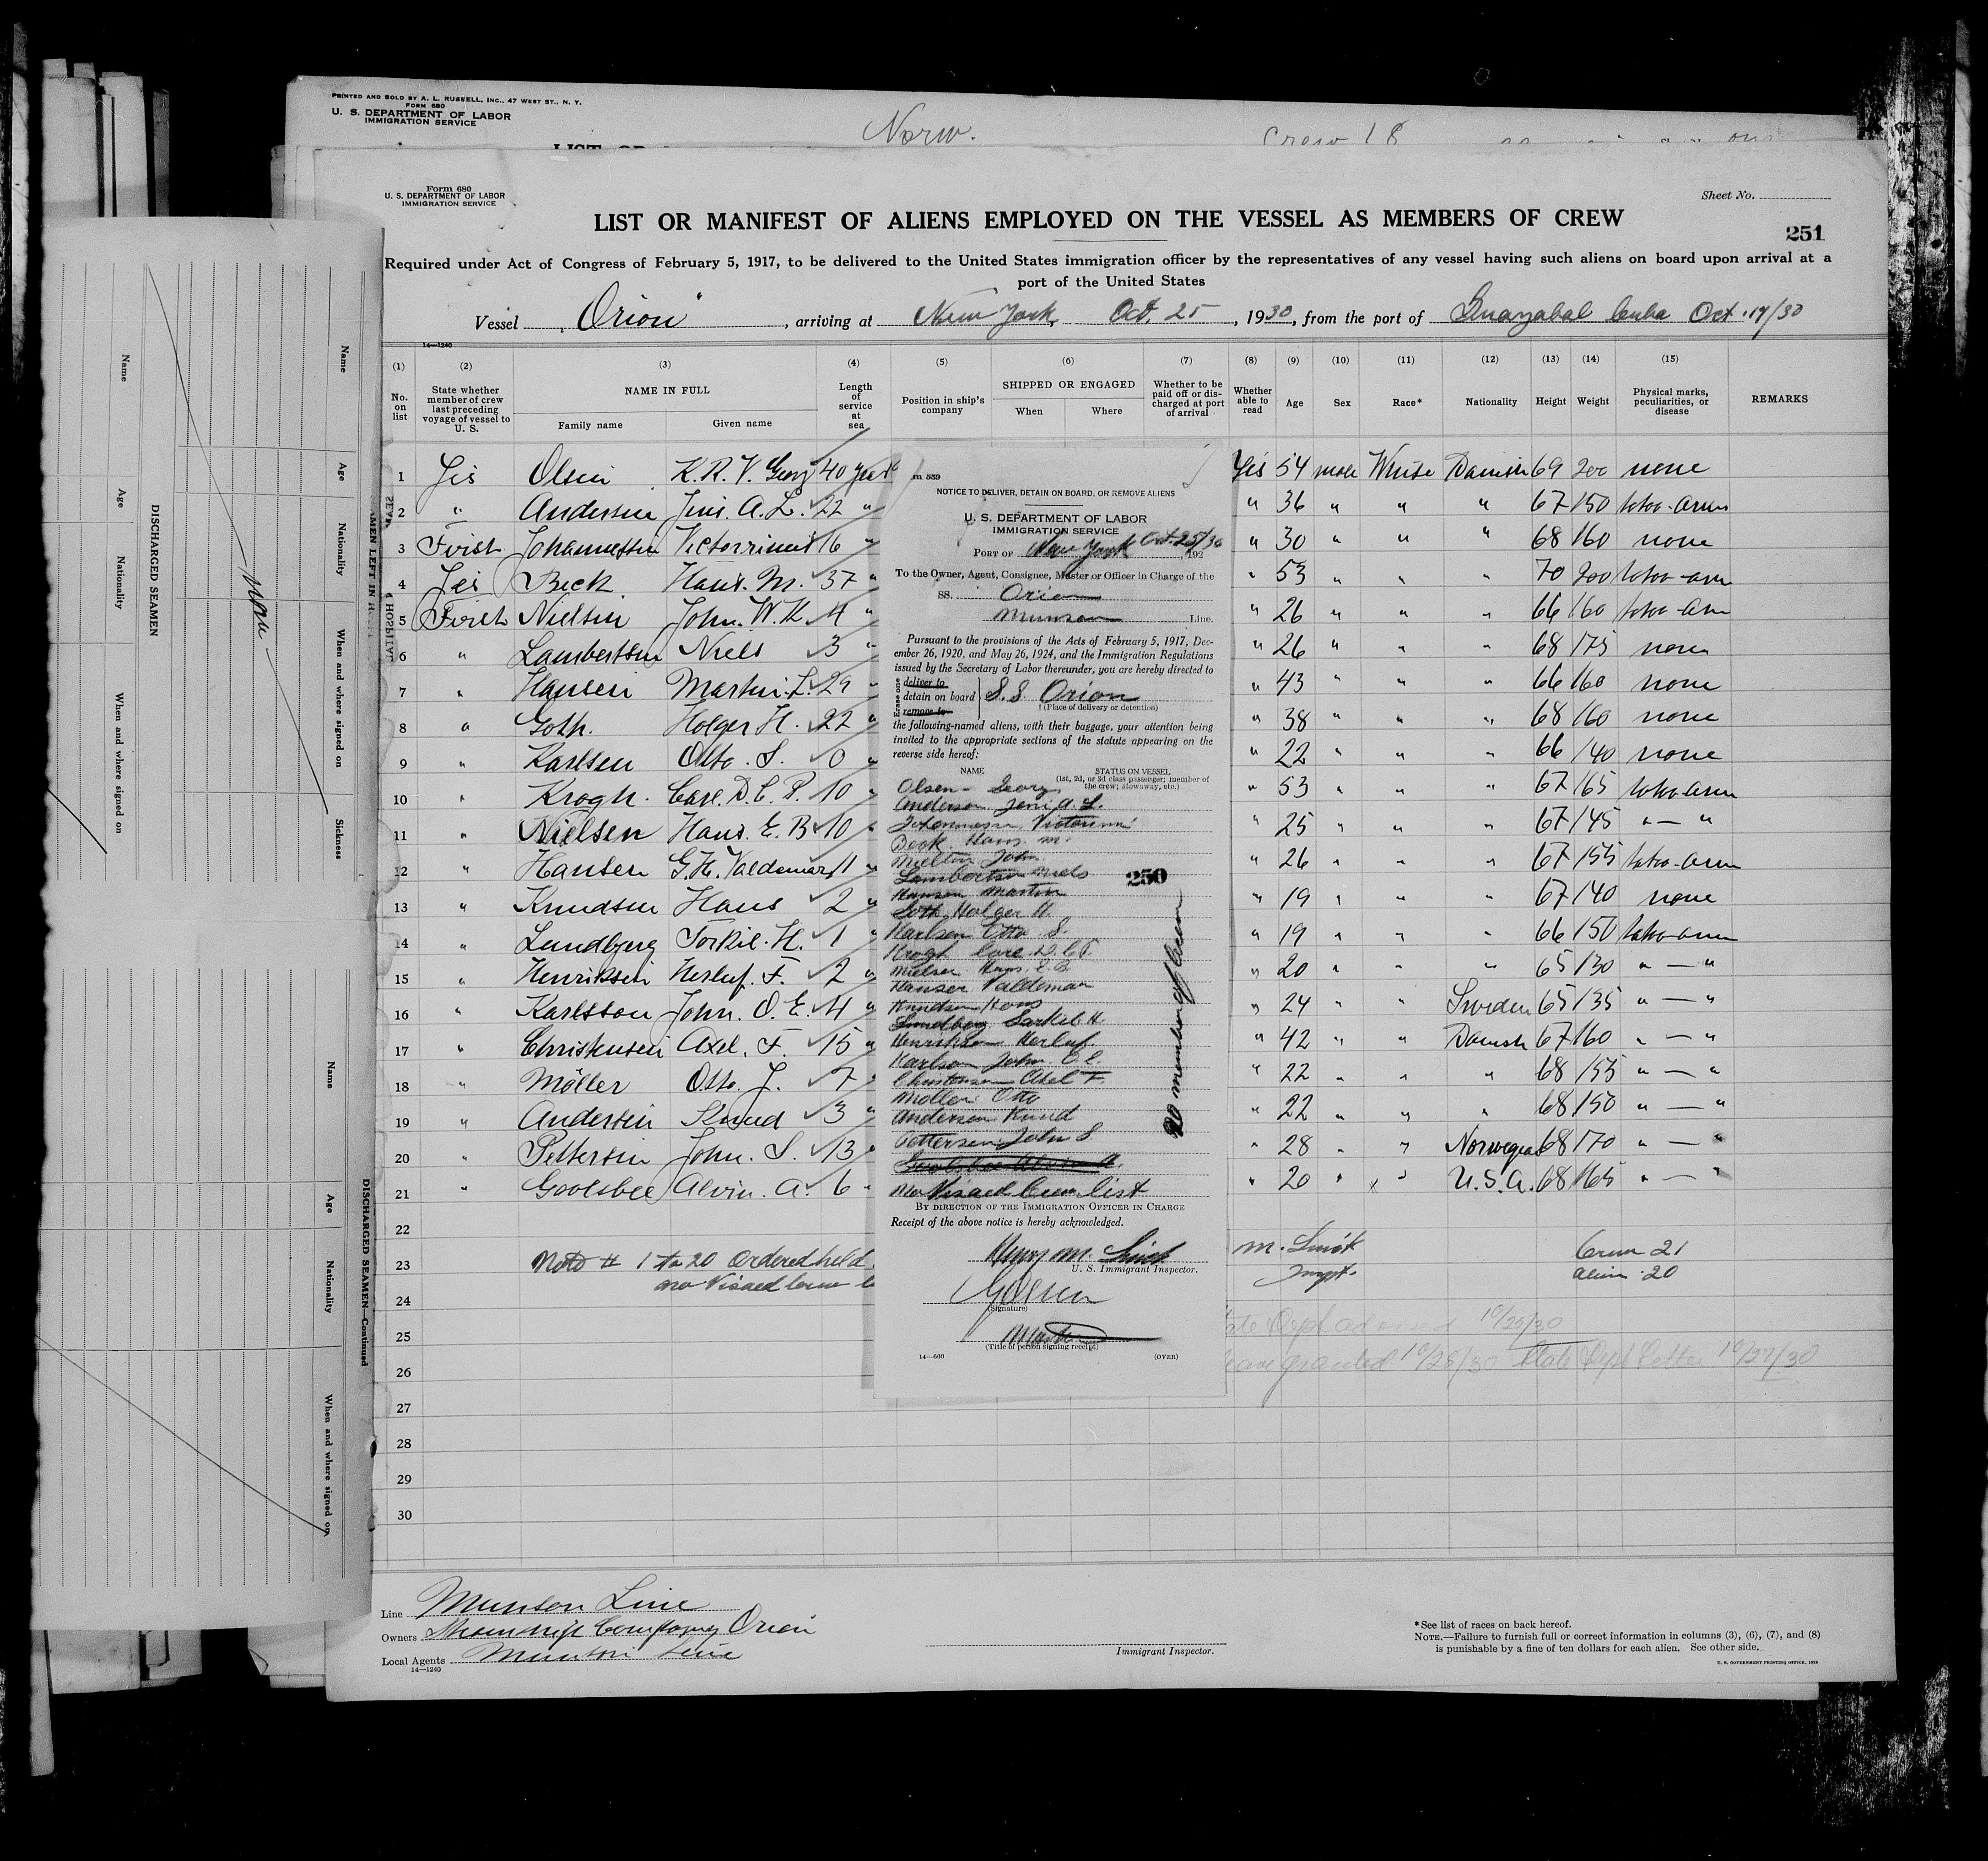 PRINTED AND SOLD BY A. L. RUSSELL, INC., 47 WEST ST., N. Y.
FORM 680
U. S. DEPARTMENT OF LABOR
IMMIGRATION SERVICE
Norw.
Crew 18
Form 680
U. S. DEPARTMENT OF LABOR
IMMIGRATION SERVICE
Sheet No.
LIST OR MANIFEST OF ALIENS EMPLOYED ON THE VESSEL AS MEMBERS OF CREW
251
Required under Act of Congress of February 5, 1917, to be delivered to the United States immigration officer by the representatives of any vessel having such aliens on board upon arrival at a
port of the United States
Vessel "Orion", arriving at New York Oct. 25, 1930, from the port of Guayabal Cuba Oct. 19/30
14—1240
(1) (2) (3) (4) (5) (6) (7) (8) (9) (10) (11) (12) (13) (14) (15)
No. on list
State whether member of crew last preceding voyage of vessel to U. S.
NAME IN FULL
Family name Given name
Length of service at sea
Position in ship's company
SHIPPED OR ENGAGED
When Where
Whether to be paid off or discharged at port of arrival
Whether able to read
Age Sex Race* Nationality Height Weight
Physical marks, peculiarities, or disease
REMARKS
1 Yes Olsen K. R. V. Georg 40 years Yes 54 male White Danish 69 200 none
2 " Andersen Jens. A. L. 22 " " 36 " " " 67 150 tatoo-arms
3 First Johannessen 6 " " 30 " " " 68 160 none
4 Yes Beck Hans. M. 37 " " 53 " " " 70 200 tatoo-arm
5 First Nielsen John. W. K 4 " " 26 " " " 66 160 tatoo-arm
6 " Lambertsen Niels 3 " " 26 " " " 68 175 none
7 " Hansen Martin. L. 29 " " 43 " " " 66 160 none
8 " Goth. Holger H. 22 " " 38 " " " 68 160 none
9 " Karlsen Otto. S. 0 " " 22 " " " 66 140 none
10 " Krogh. Carl. D. C. P. 10 " " 53 " " " 67 165 tatoo-arm
11 " Nielsen Hans. E. B 10 " " 25 " " " 67 145 " — "
12 " Hansen G. H. Valdemar 1 " " 26 " " " 67 155 tatoo-arm
13 " Knudsen Hans 2 " " 19 " " " 67 140 none
14 " Lundbjerg Torkil. H. 1 " " 19 " " " 66 150 tatoo-arm
15 " Henriksen Herluf. F. 2 " " 20 " " " 65 130 " — "
16 " Karlsson John. O. E. 4 " " 24 " " Sweden 65 135 " — "
17 " Christensen Axel. F. 15 " " 42 " " Danish 67 160 " — "
18 " Möller Otto. J. 7 " " 22 " " " 68 155 " — "
19 " Andersen Knud 3 " " 22 " " " 68 150 " — "
20 " Pettersen John. S. 13 " " 28 " " Norwegian 68 170 " — "
21 " Goolsbee Alvin. A. 6 " " 20 " " U.S.A. 68 165 " — "
22
23 Note # 1 to 20 ordered held
no Visaed Crew
M. Smith
Inspt.
Crew 21
alien 20
24
25 Dept advised 10/25/30
26 granted 10/26/30 State Dept Letter 10/27/30
27
28
29
30
559
NOTICE TO DELIVER, DETAIN ON BOARD, OR REMOVE ALIENS
U. S. DEPARTMENT OF LABOR
IMMIGRATION SERVICE
PORT OF New York Oct. 25/30 192
To the Owner, Agent, Consignee, Master or Officer in Charge of the
SS. Orion
Munson Line.
Pursuant to the provisions of the Acts of February 5, 1917, December 26, 1920, and May 26, 1924, and the Immigration Regulations
issued by the Secretary of Labor thereunder, you are hereby directed to
Erase one
deliver to
detain on board
remove to
S.S. Orion
(Place of delivery or detention)
the following-named aliens, with their baggage, your attention being
invited to the appropriate sections of the statute appearing on the
reverse side hereof:
NAME STATUS ON VESSEL
(1st, 2d, or 3d class passenger; member of the crew; stowaway, etc.)
Olsen - Georg
Andersen Jens A. L.
Johannessen
Beck. Hans. M.
John
Lambertsen Niels
Hansen Martin
Goth Holger H.
Karlsen Otto S.
Krogh Carl D. C. P.
Nielsen Hans. E. B.
Hansen Valdemar
Knudsen Hans
Lundberg Torkil H.
Henriksen Herluf.
Karlson John O. E.
Christensen Axel F.
Moller Otto
Andersen Knud
Pettersen John S
Goolsbee Alvin A.
250
20 member of Crew
no Visaed Crew list
BY DIRECTION OF THE IMMIGRATION OFFICER IN CHARGE
Receipt of the above notice is hereby acknowledged.
Henry M. Smith
U. S. Immigrant Inspector.
G Olsen
(Signature)
Master
(Title of person signing receipt)
14—660 (OVER)
Line Munson Line
Owners Steamship Company Orion
Local Agents Munson Line
14—1240
Immigrant Inspector.
*See list of races on back hereof.
NOTE.—Failure to furnish full or correct information in columns (3), (6), (7), and (8)
is punishable by a fine of ten dollars for each alien. See other side.
U. S. GOVERNMENT PRINTING OFFICE, 1928
DISCHARGED SEAMEN
Name Age Nationality When and where signed on
none
Name Age Nationality When and where signed on Sickness
DISCHARGED SEAMEN—Continued
Name Age Nationality When and where signed on